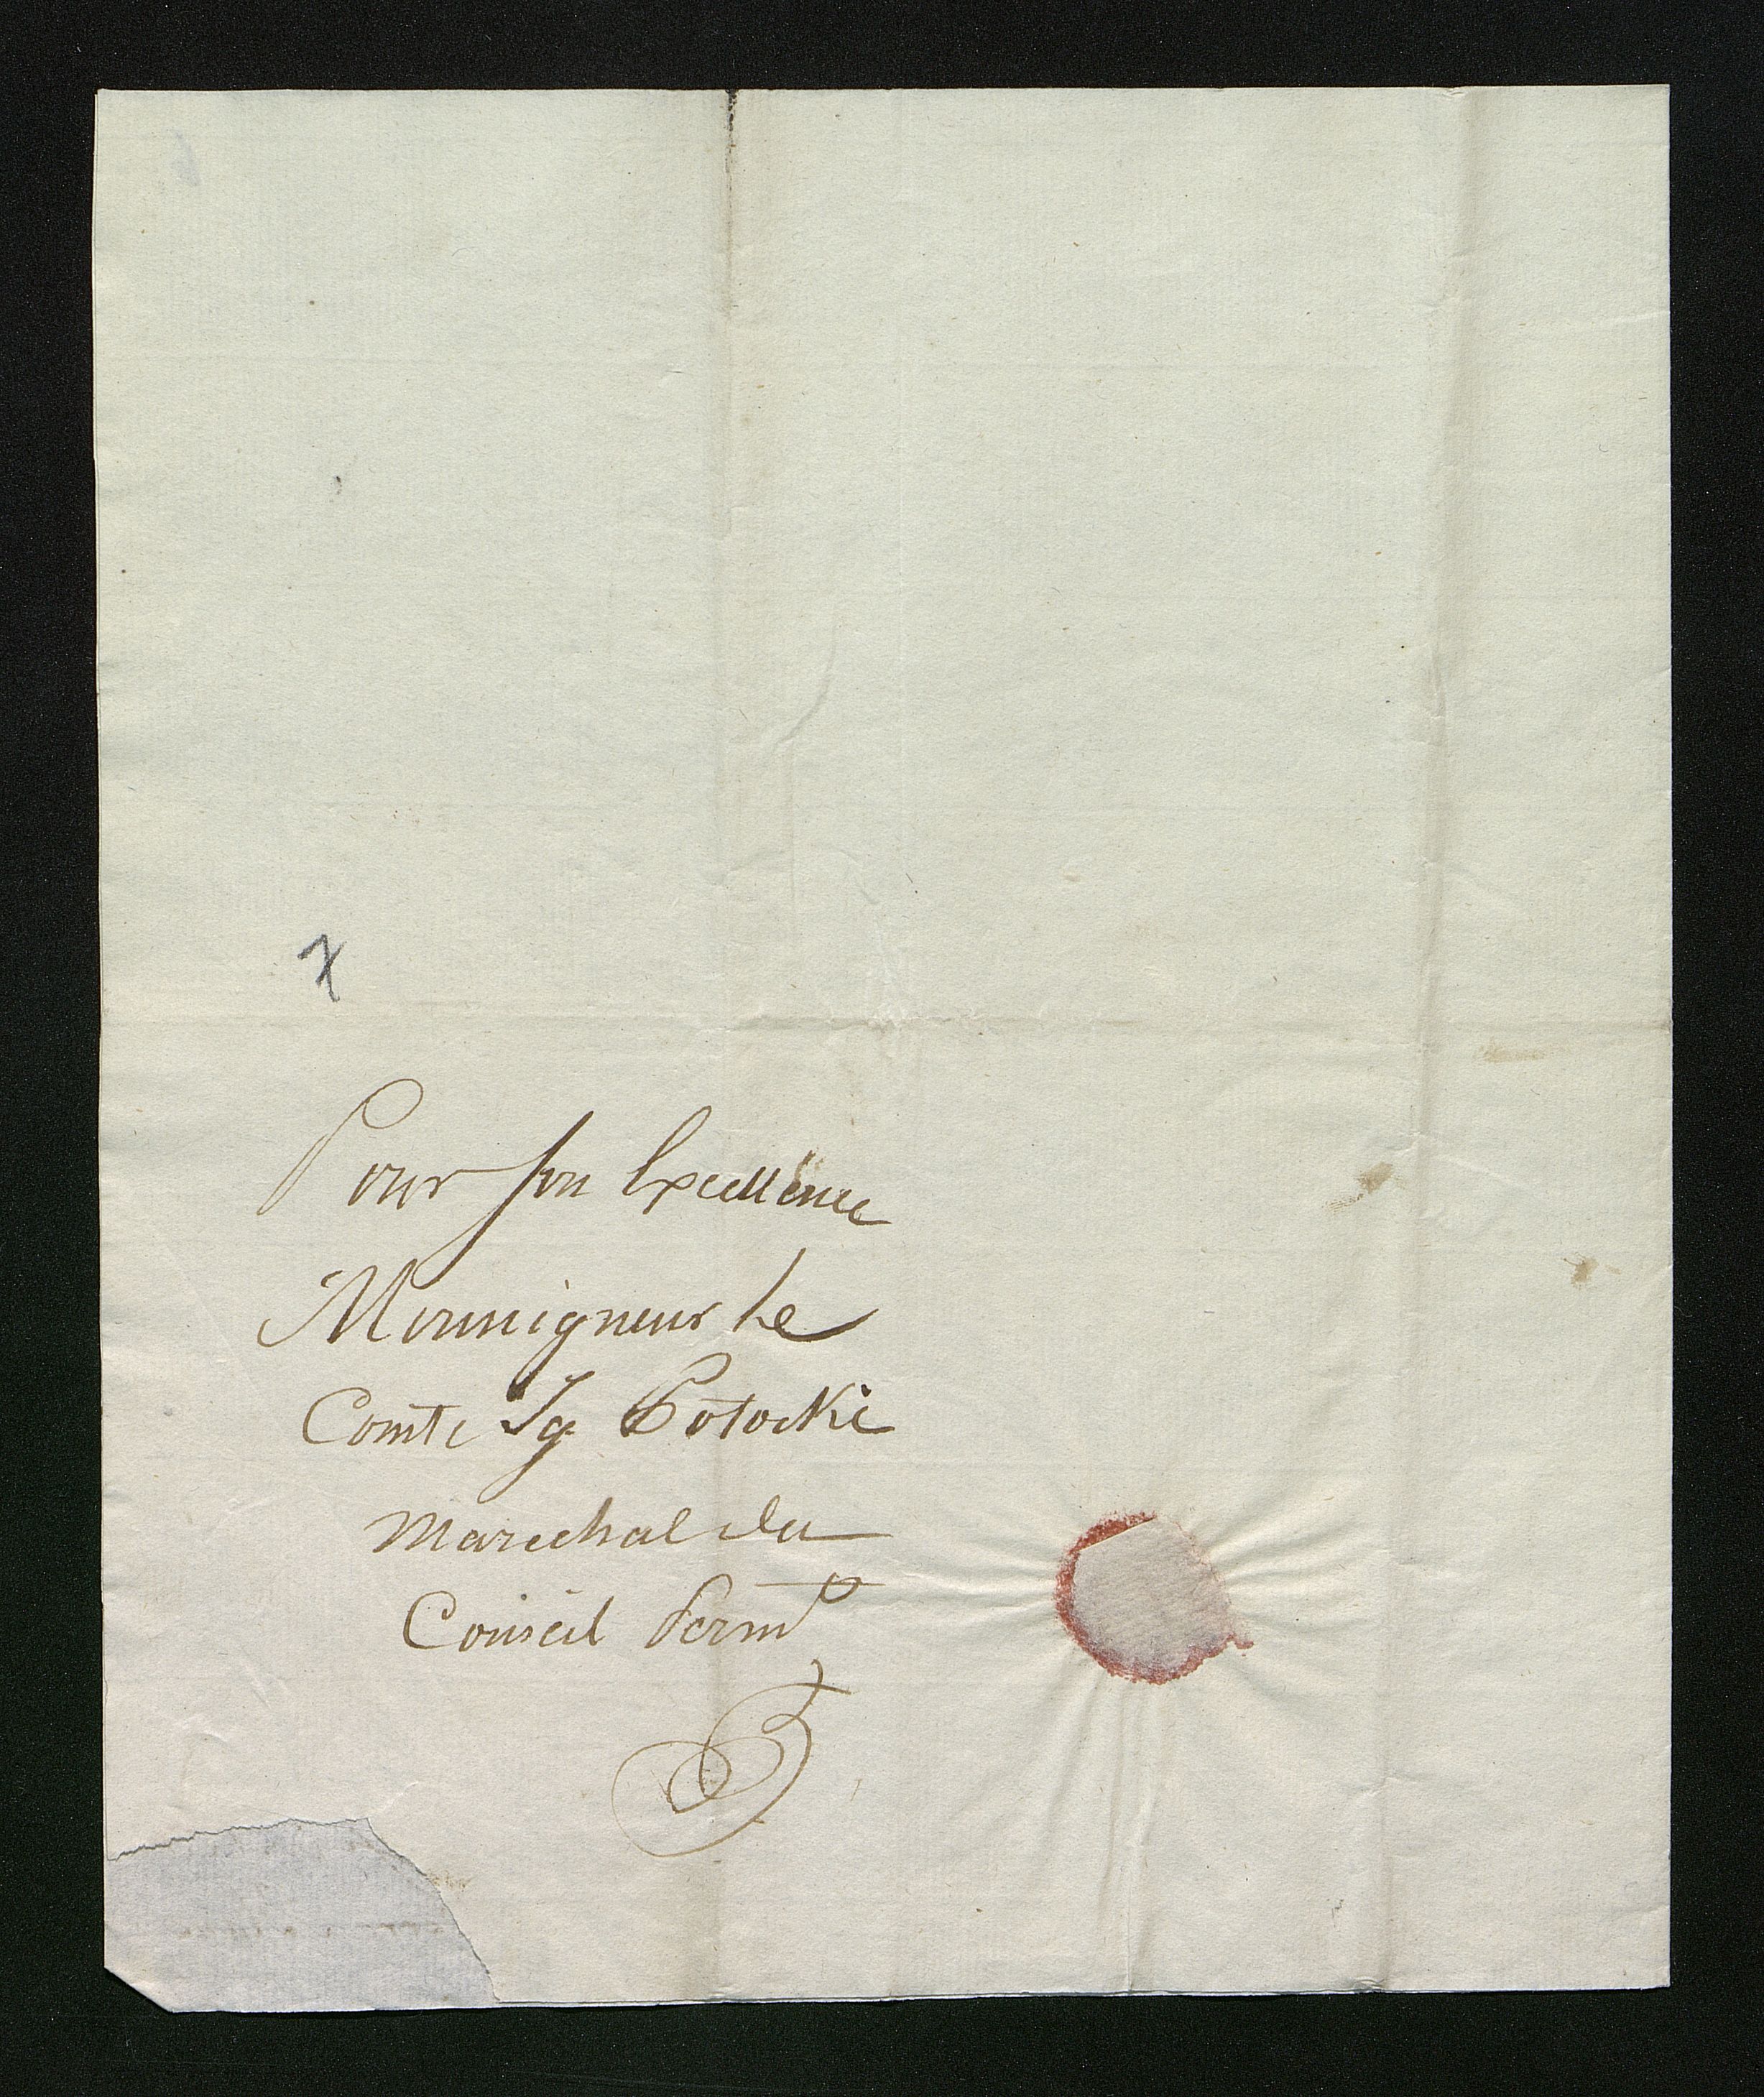 Pour son Excellence
Monseigneur le
Comte Ig Potocki
Marechal du
Conseil Perm